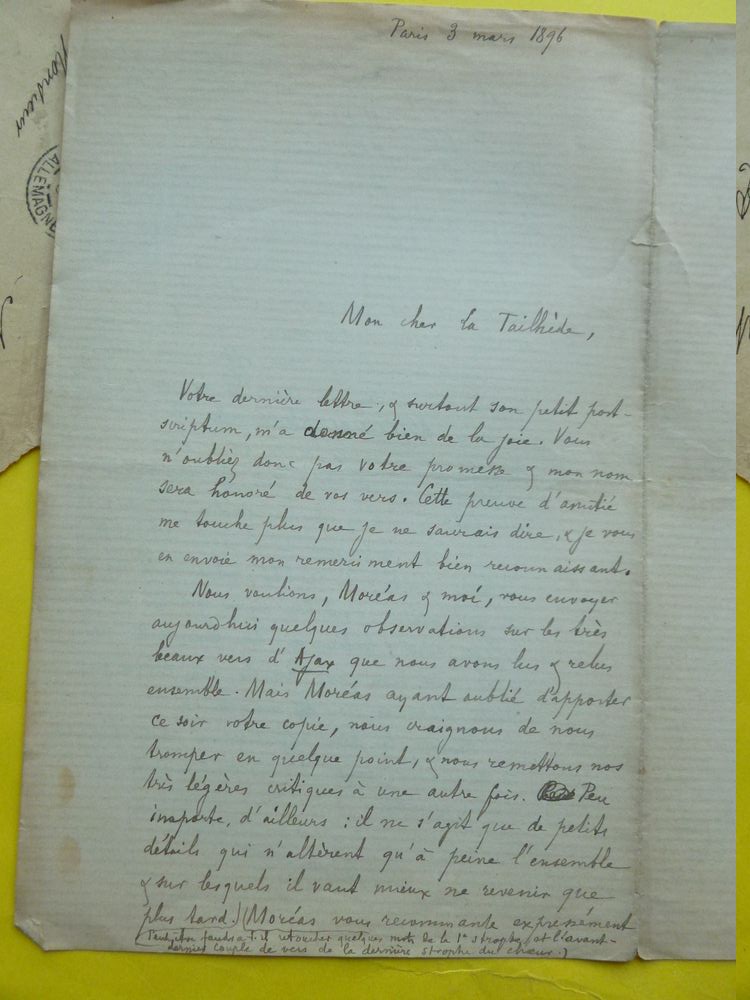 Paris 3 mars 1896
Monsieur
ALLEMAGNE
Mon cher La Tailhède,
Votre dernière lettre, & surtout son petit post-
scriptum, m'a donné bien de la joie. Vous
n'oubliez donc pas votre promesse & mon nom
sera honoré de vos vers. Cette preuve d'amitié
me touche plus que je ne saurais dire, & je vous
en envoie mon remerciment bien reconnaissant.
Nous voulions, Moréas & moi, vous envoyer
aujourd'hui quelques observations sur les très
beaux vers d'Ajax que nous avons lus & relus
ensemble. Mais Moréas ayant oublié d'apporter
ce soir votre copie, nous craignons de nous
tromper en quelque point, & nous remettons nos
très légères critiques à une autre fois. Peu
importe, d'ailleurs : il ne s'agit que de petits
détails qui n'altèrent qu'à peine l'ensemble
& sur lesquels il vaut mieux ne revenir que
plus tard. (Moréas vous recommande expressément
Peut-être faudra-t-il retoucher quelques mots de la 1re strophe, et l'avant-
dernier couple de vers de la dernière strophe du chœur.)